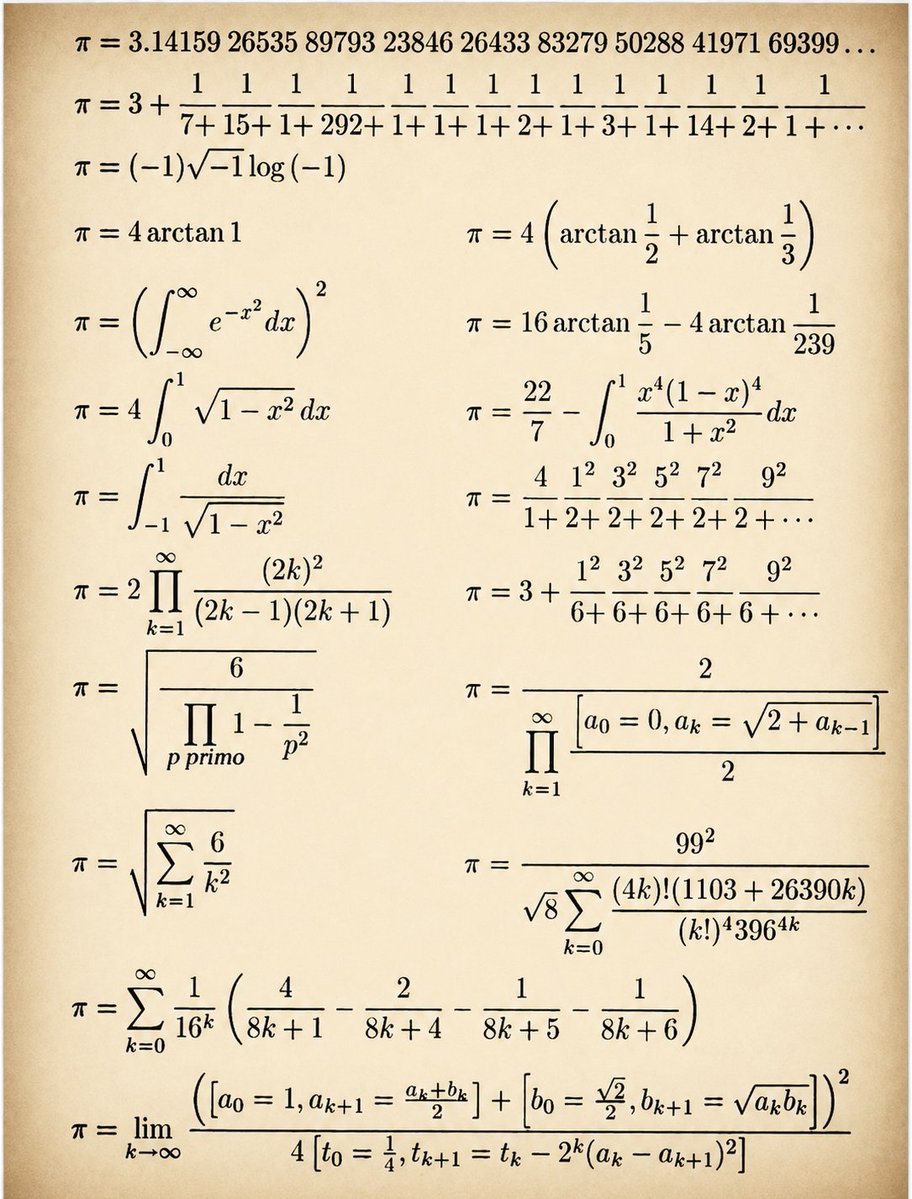 π = 3.14159 26535 89793 23846 26433 83279 50288 41971 69399…
π = 3 + 1/7+ 1/15+ 1/1+ 1/292+ 1/1+ 1/1+ 1/1+ 1/2+ 1/1+ 1/3+ 1/1+ 1/14+ 1/2+ 1/1 + ⋯
π = (−1)√−1 log (−1)
π = 4 arctan 1
π = 4 (arctan 1/2 + arctan 1/3)
π = (∫_{−∞}^{∞} e^{−x²} dx)²
π = 16 arctan 1/5 − 4 arctan 1/239
π = 4 ∫_0^1 √(1 − x²) dx
π = 22/7 − ∫_0^1 x⁴(1 − x)⁴/(1 + x²) dx
π = ∫_{−1}^1 dx/√(1 − x²)
π = 4/1+ 1²/2+ 3²/2+ 5²/2+ 7²/2+ 9²/2 + ⋯
π = 2 ∏_{k=1}^∞ (2k)²/((2k − 1)(2k + 1))
π = 3 + 1²/6+ 3²/6+ 5²/6+ 7²/6+ 9²/6 + ⋯
π = √(6/(∏_{p primo} 1 − 1/p²))
π = 2/(∏_{k=1}^∞ [a₀ = 0, a_k = √(2 + a_{k−1})]/2)
π = √(∑_{k=1}^∞ 6/k²)
π = 99²/(√8 ∑_{k=0}^∞ (4k)!(1103 + 26390k)/((k!)⁴396^{4k}))
π = ∑_{k=0}^∞ 1/16^k (4/(8k + 1) − 2/(8k + 4) − 1/(8k + 5) − 1/(8k + 6))
π = lim_{k→∞} ([a₀ = 1, a_{k+1} = (a_k+b_k)/2] + [b₀ = √2/2, b_{k+1} = √(a_k b_k)])²/(4 [t₀ = 1/4, t_{k+1} = t_k − 2^k(a_k − a_{k+1})²])